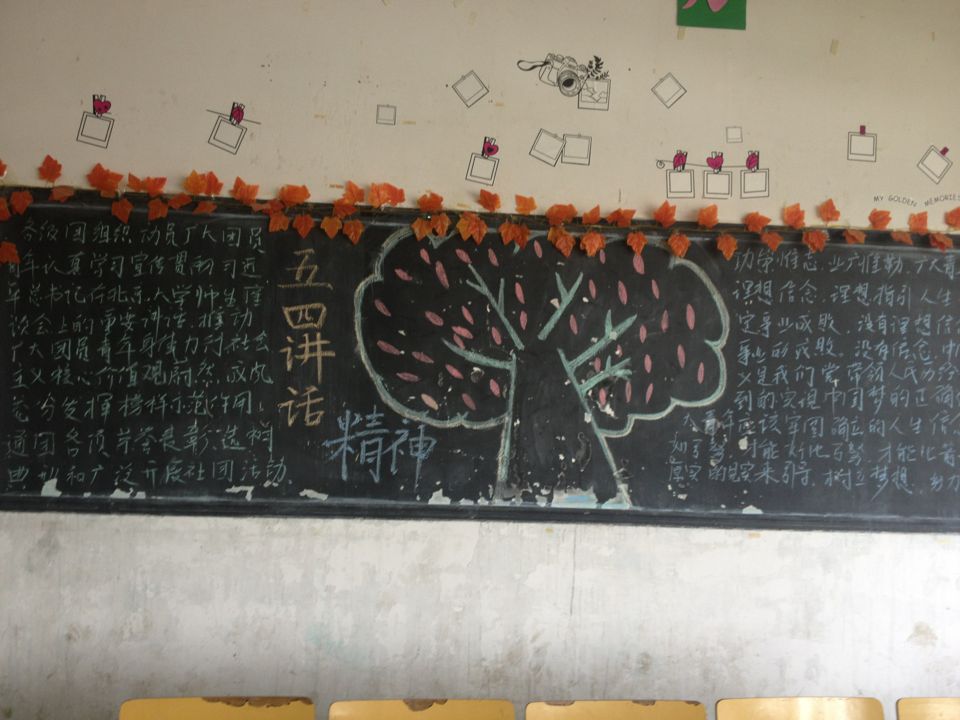 MY GOLDEN MEMORIES
各级团组织动员广大团员
青年认真学习宣传贯彻习近
平总书记在北京大学师生座
谈会上的重要讲话,推动
广大团员青年身体力行社会
主义核心价值观蔚然成风
充分发挥榜样示范作用,
通团各项荣誉表彰、选树
典礼和广泛开展社团活动
五四讲话
精神
功崇惟志,业广惟勤,广大青
理想信念,理想指引人生
定事业成败,没有理想信
事业的成败。没有信念,中
义是我们党带领人民历经
到的实现中国梦的正确
大青年应该牢固确立的人生信念
才能对比 才能
的现实来引导,树立梦想,努力